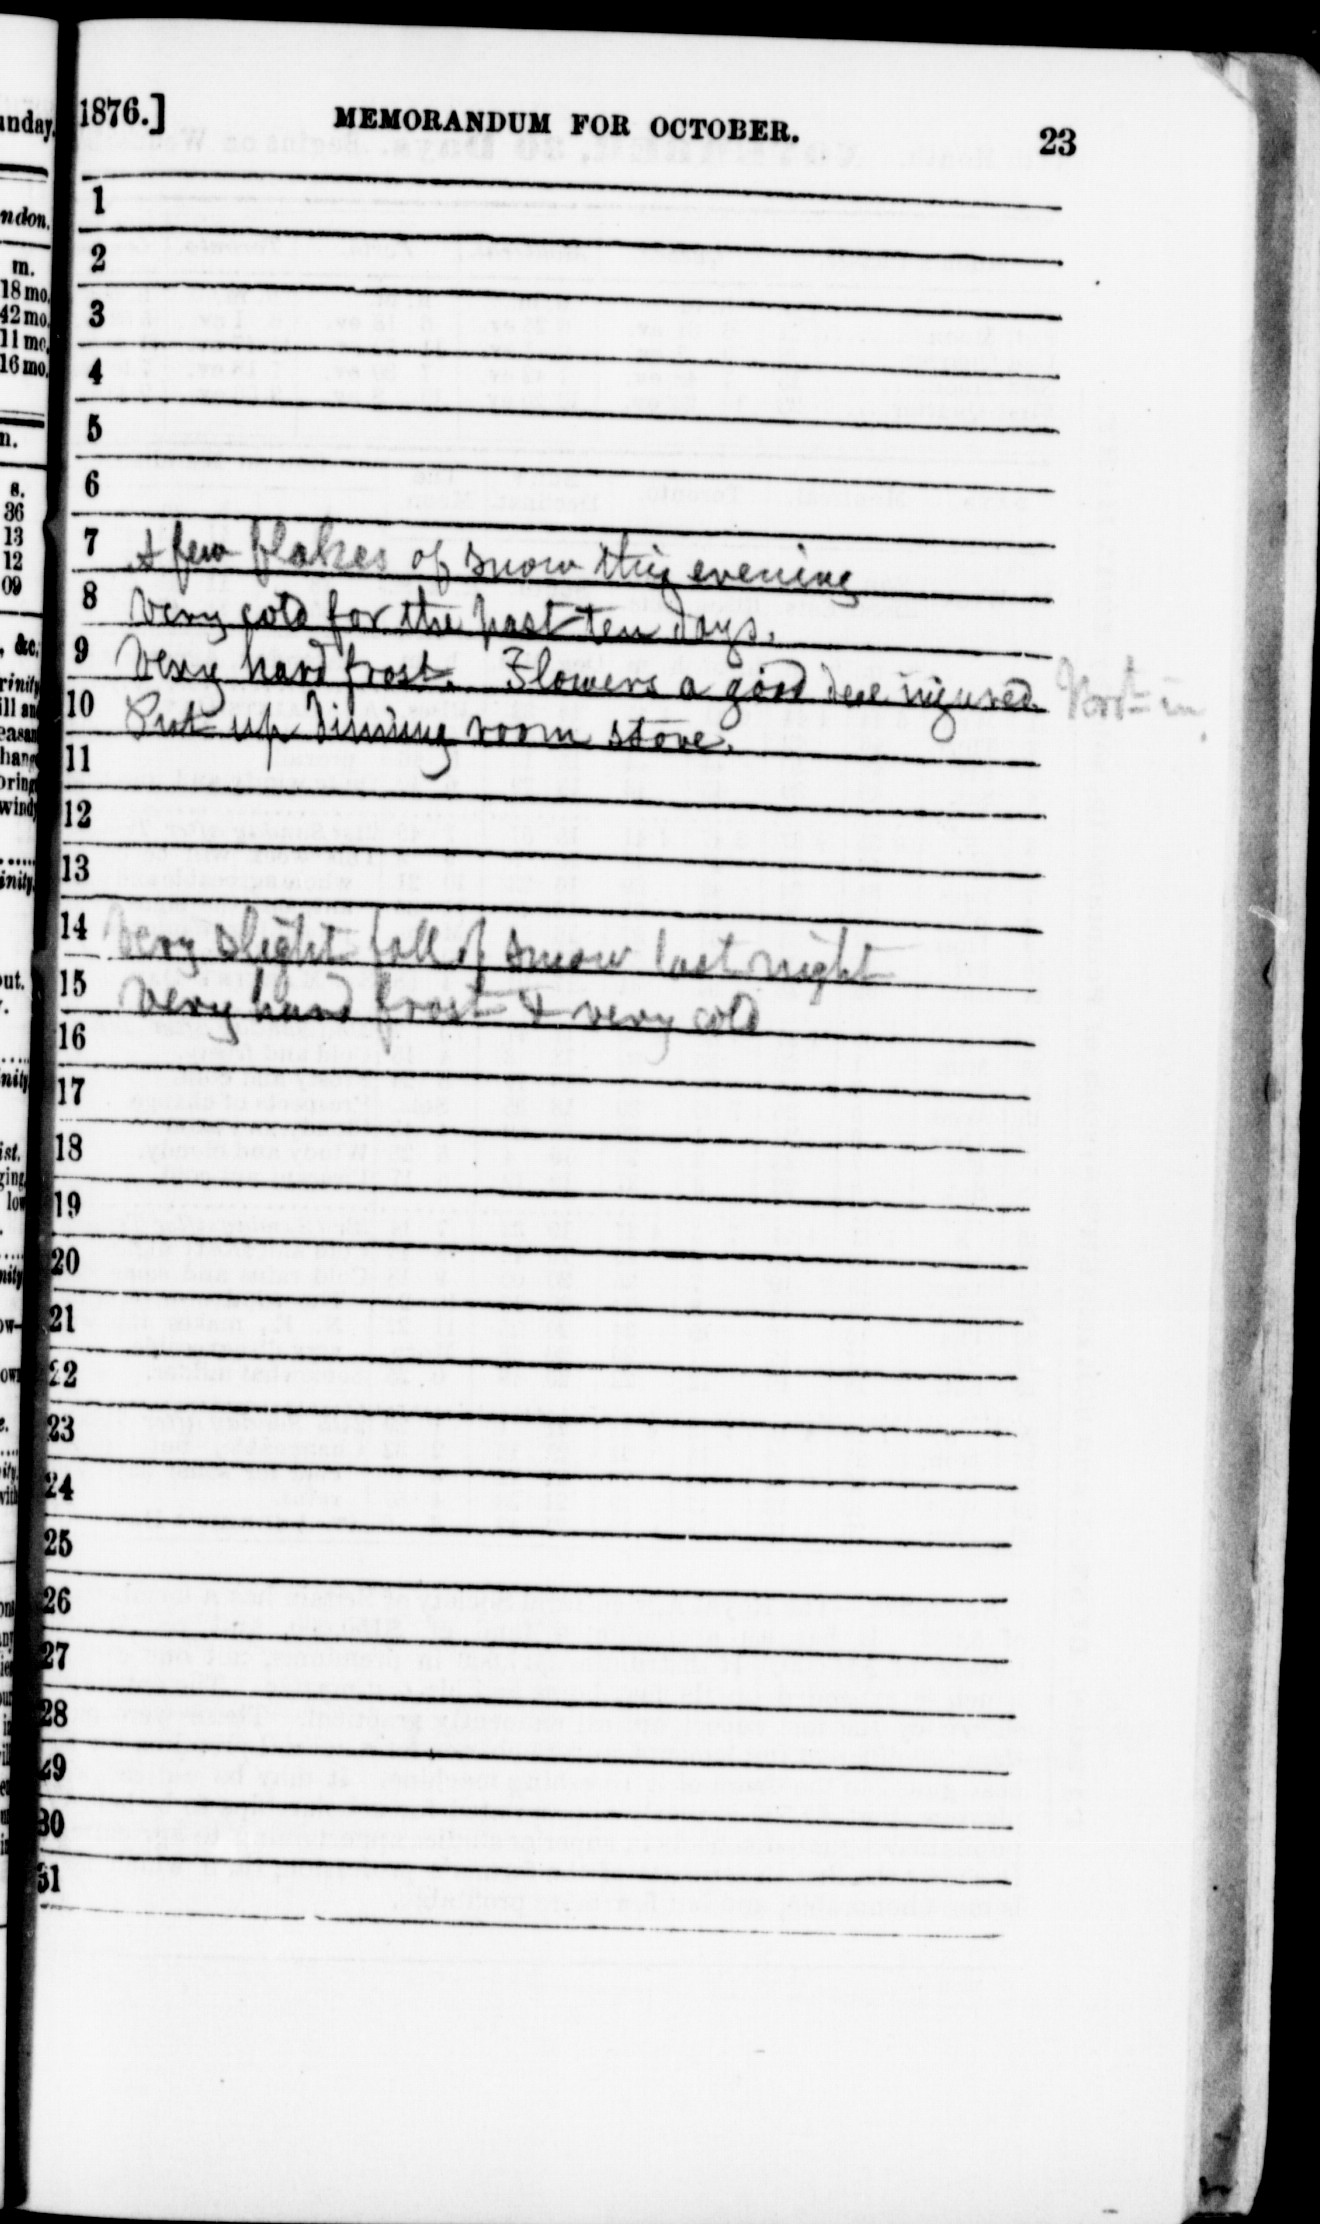 1876.] MEMORANDUM FOR OCTOBER. 23
1
2
3
4
5
6
7 A few flakes of snow this evening
8 Very cold for the past ten days.
9 Very hard frost. Flowers a good deal injured
10 Put up dinning room stove.
11
12
13
14 Very slight fall of snow last night
15 Very hard frost & very cold
16
17
18
19
20
21
22
23
24
25
26
27
28
29
30
31